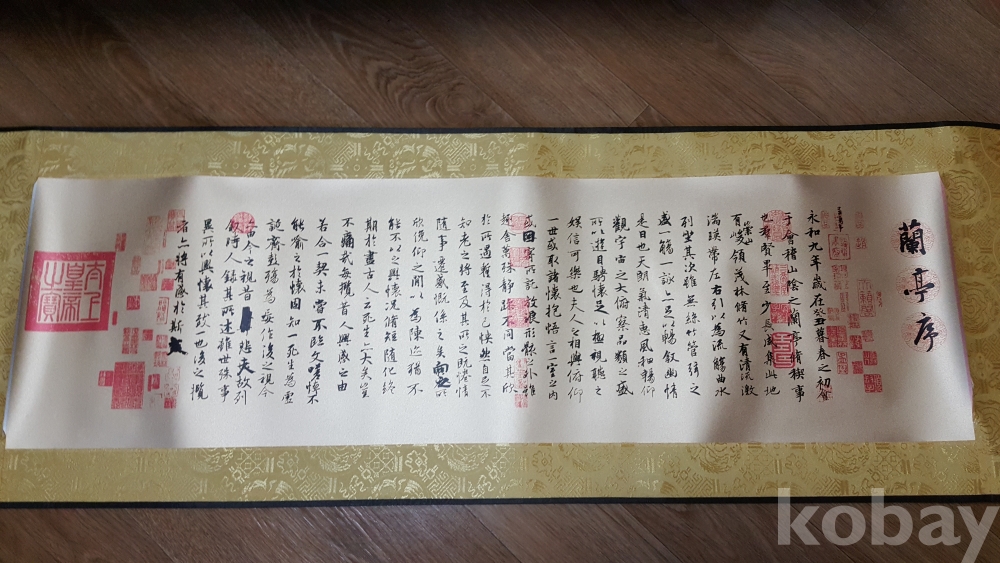 蘭亭序
永和九年歲在癸丑暮春之初會
于會稽山陰之蘭亭脩稧事
也群賢畢至少長咸集此地
有崇山峻領茂林脩竹又有清流激
湍暎帶左右引以為流觴曲水
列坐其次雖無絲竹管弦之
盛一觴一詠亦足以暢敘幽情
是日也天朗氣清惠風和暢仰
觀宇宙之大俯察品類之盛
所以遊目騁懷足以極視聽之
娛信可樂也夫人之相與俯仰
一世或取諸懷抱悟言一室之內
或因寄所託放浪形骸之外雖
趣舍萬殊靜躁不同當其欣
於所遇暫得於己怏然自足不
知老之將至及其所之既惓情
隨事遷感慨係之矣向之所
欣俛仰之閒以為陳迹猶不
能不以之興懷況脩短隨化終
期於盡古人云死生亦大矣豈
不痛哉每攬昔人興感之由
若合一契未嘗不臨文嗟悼不
能喻之於懷固知一死生為虛
誕齊彭殤為妄作後之視今
亦由今之視昔悲夫故列
敘時人錄其所述雖世殊事
異所以興懷其致一也後之攬
者亦將有感於斯文
太上皇帝之寶
kobay